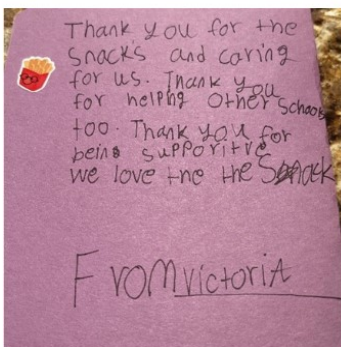 Thank you for the
snacks and caring
for us. Thank you
for helping other schools
too. Thank you for
being supporitve
we love the the Snack
From Victoria